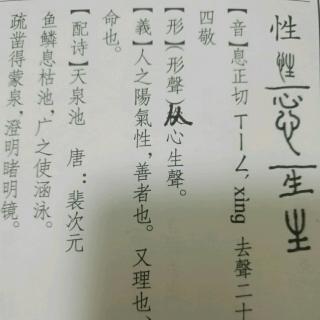 性
【音】息正切 ㄒㄧㄥˋ xìng 去聲二十
四敬
【形】(形聲)从心生聲。
【義】人之陽氣性，善者也。又理也、
命也。
【配诗】天泉池 唐：裴次元
鱼鳞息枯池，广之使涵泳。
疏凿得蒙泉，澄明睹明镜。